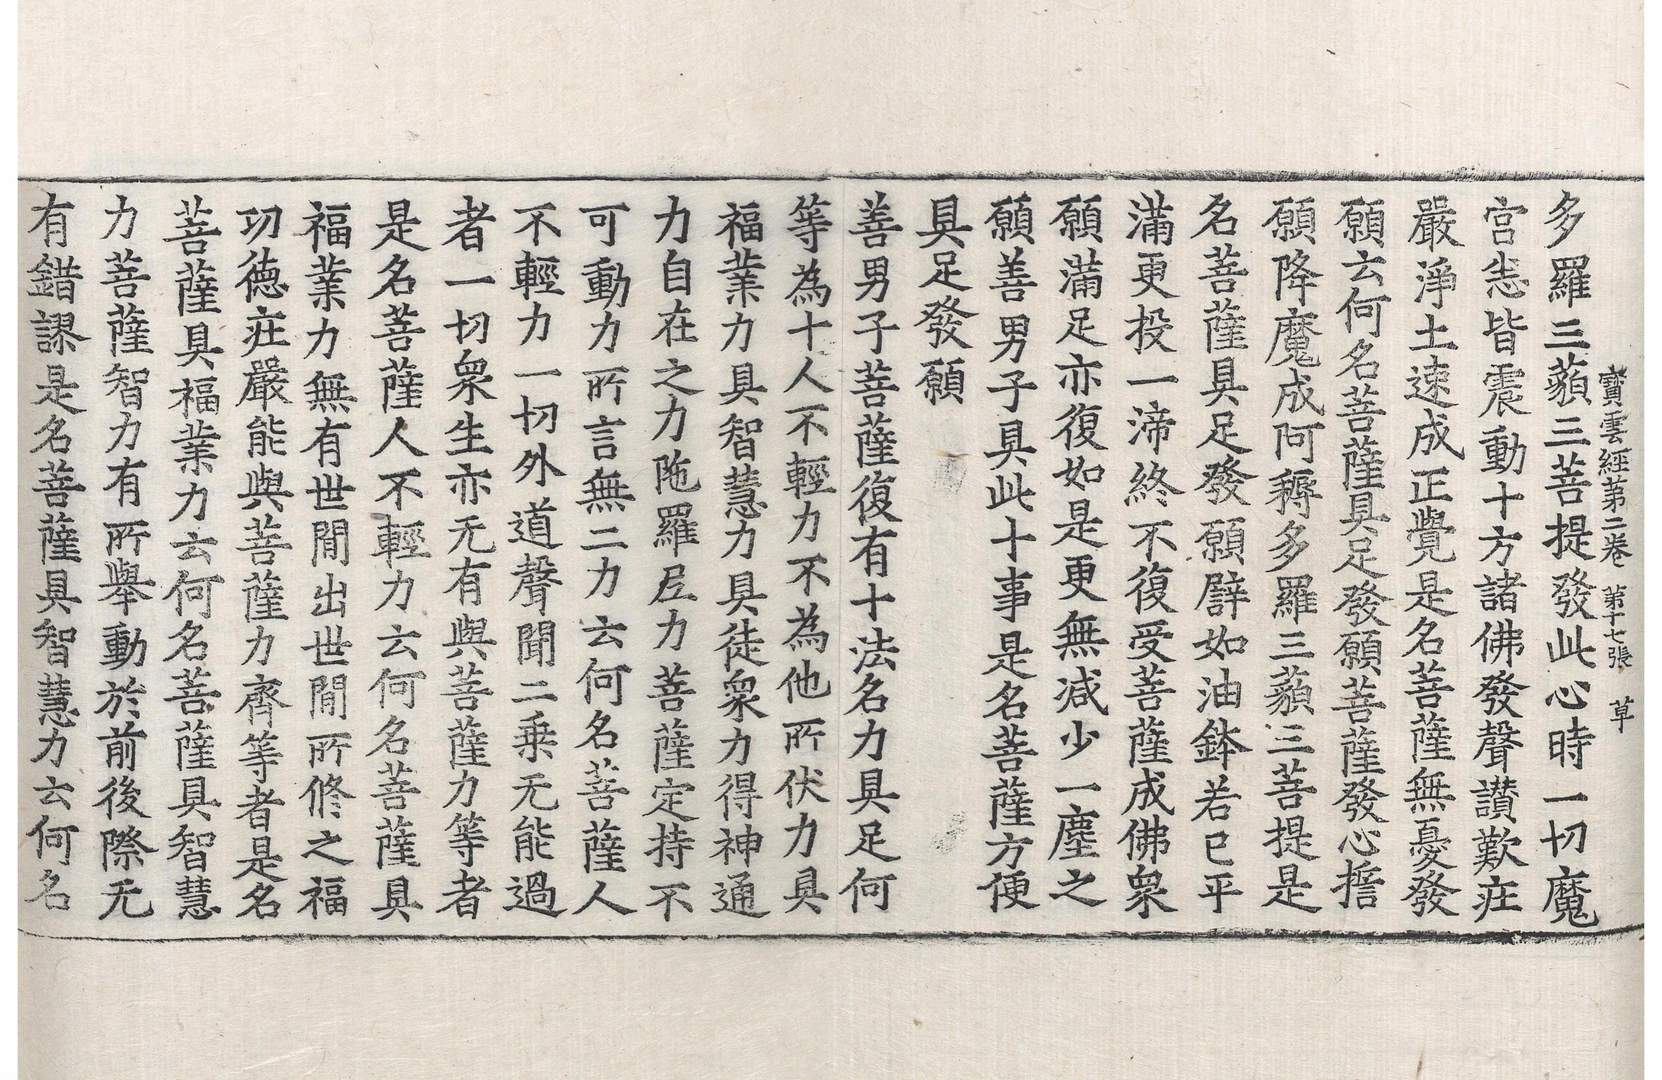 寶雲經第二卷 第十七張 草
多羅三藐三菩提發此心時一切魔
宮悉皆震動十方諸佛發聲讃歎庄
嚴淨土速成正覺是名菩薩無憂發
願云何名菩薩具足發願菩薩發心擔
願降魔成阿耨多羅三藐三菩提是
名菩薩具足發願譬如油鉢若已平
滿更投一渧終不復受菩薩成佛衆
願滿足亦復如是更無減少一塵之
願善男子具此十事是名菩薩方便
具足發願
善男子菩薩復有十法名力具足何
等為十人不輕力不為他所伏力具
福業力具智慧力具徒衆力得神通
力自在之力陁羅尼力菩薩定持不
可動力所言無二力云何名菩薩人
不輕力一切外道聲聞二乗无能過
者一切衆生亦无有與菩薩力等者
是名菩薩人不輕力云何名菩薩具
福業力無有世閒出世閒所修之福
功德庄嚴能與菩薩力齊等者是名
菩薩具福業力云何名菩薩具智慧
力菩薩智力有所舉動於前後際无
有錯謬是名菩薩具智慧力云何名